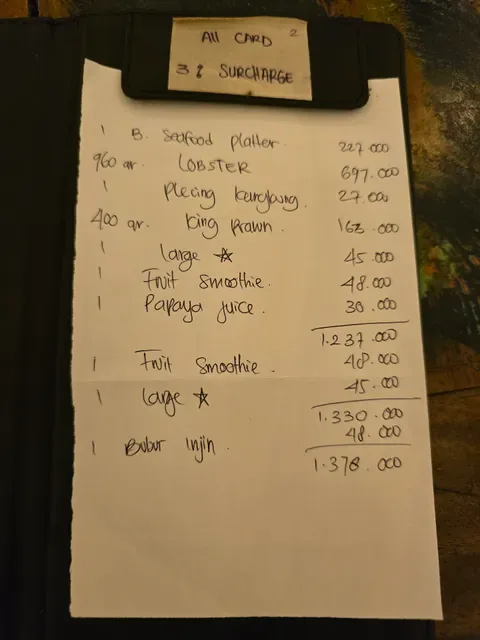 All CARD 2
3 % SURCHARGE
1 B. Seafood platter. 227.000
960 gr. LOBSTER 697.000
1 plecing kangkung. 27.000
400 gr. king prawn. 163.000
1 large ☆ 45.000
1 Fruit smoothie. 48.000
1 Papaya juice. 30.000
1.237.000
1 Fruit smoothie. 48.000
1 large ☆ 45.000
1.330.000
1 Bubur injin. 48.000
1.378.000